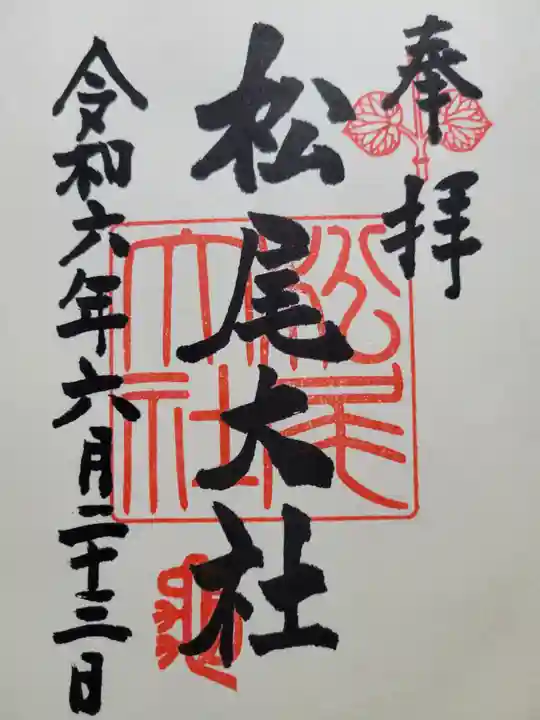 奉拝
松尾大社
令和六年六月二十三日
松尾大社